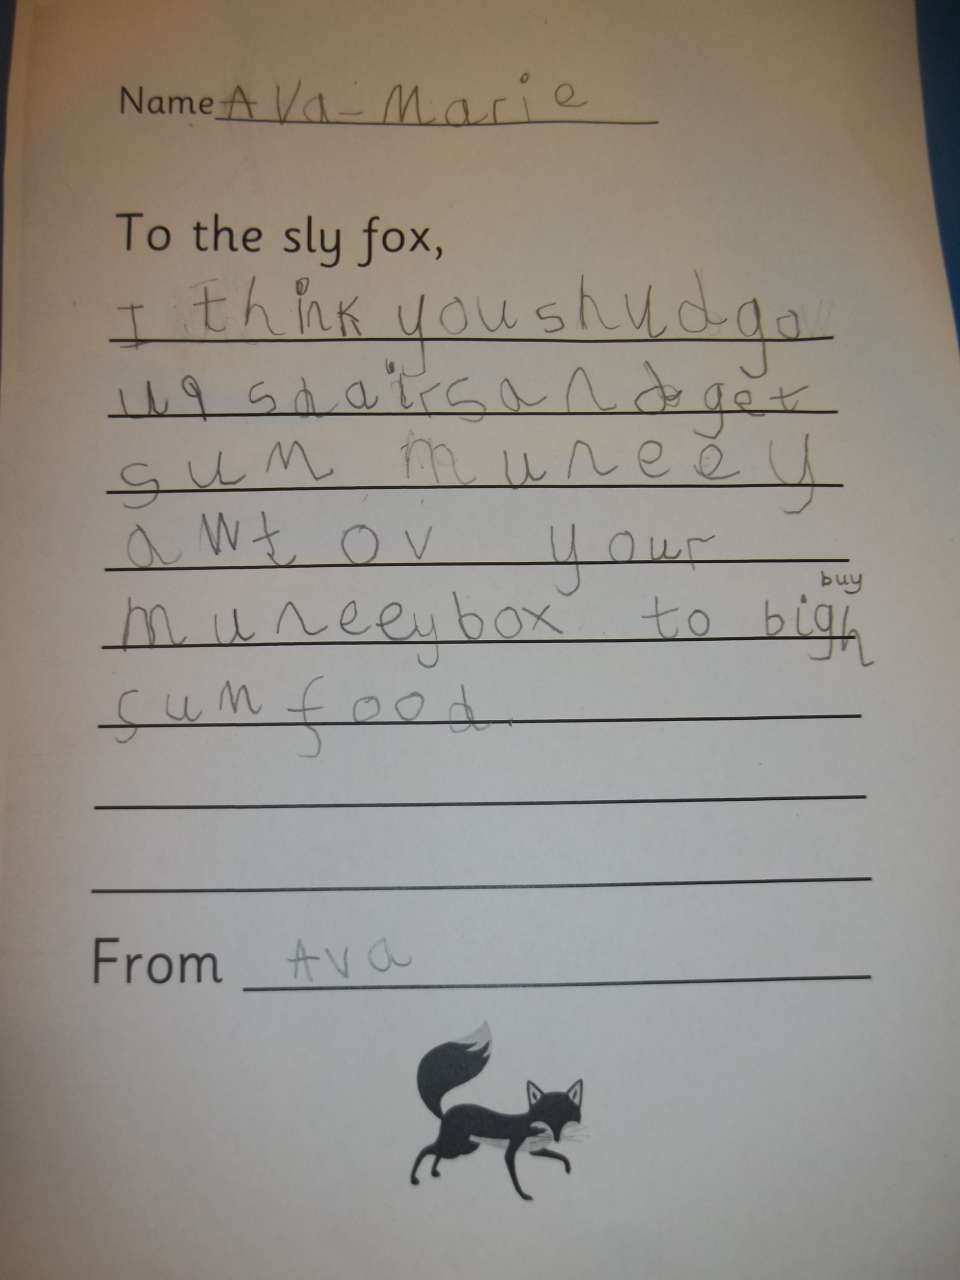 Name Ava-Marie
To the sly fox,
I think you shud go
uq sdairs and get
sum muneey
awt ov your
buy
muneeybox to bigh
sum food.
From Ava